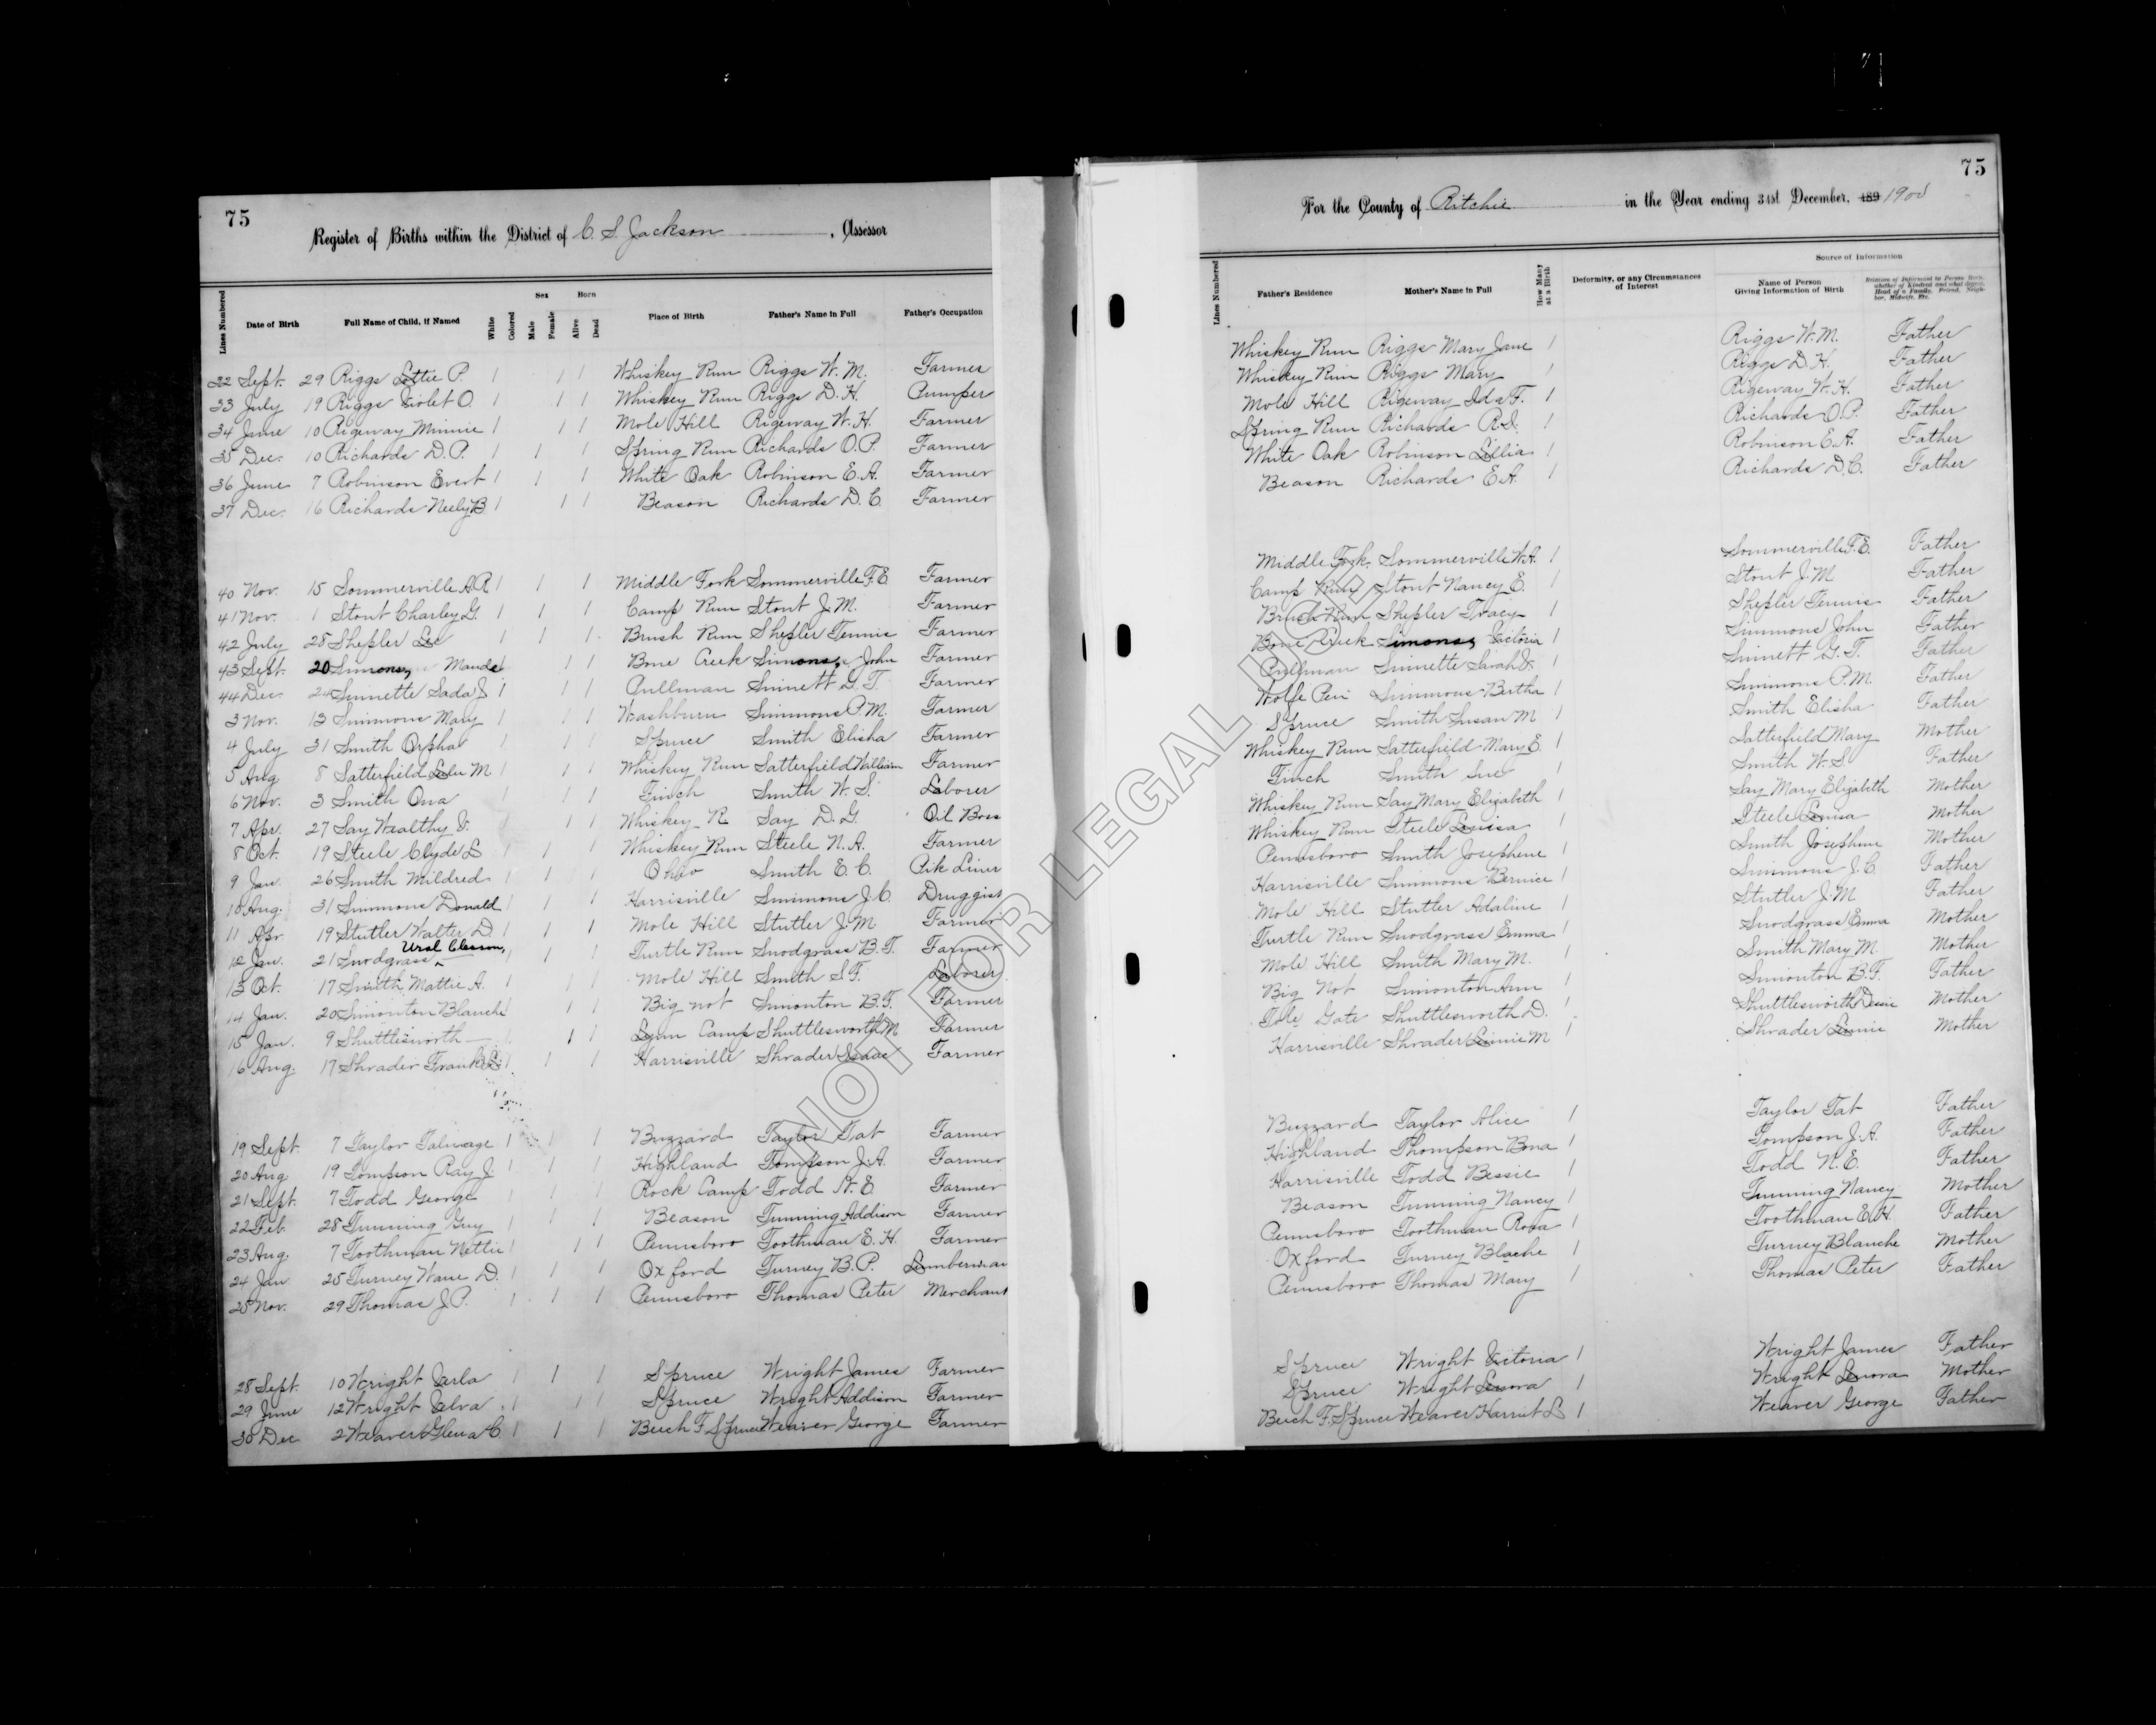 75
Register of Births within the District of C. S. Jackson, Assessor
Lines Numbered
Date of Birth
Full Name of Child, if Named
White
Colored
Sex
Male
Female
Born
Alive
Dead
Place of Birth
Father's Name in Full
Father's Occupation
32 Sept. 29 Riggs Lottie P. 1 1 1 Whiskey Run Riggs W. M. Farmer
33 July 19 Riggs Violet O. 1 1 1 Whiskey Run Riggs D. H. Pumper
34 June 10 Rigeway Minnie 1 1 1 Mole Hill Rigeway W. H. Farmer
35 Dec. 10 Richards D. P. 1 1 1 Spring Run Richards O. P. Farmer
36 June 7 Robinson Evert 1 1 1 White Oak Robinson E. A. Farmer
37 Dec. 16 Richards Neely B. 1 1 1 Beason Richards D. C. Farmer
40 Nov. 15 Sommerville A. R. 1 1 1 Middle Fork Sommerville F. E. Farmer
41 Nov. 1 Stout Charley G. 1 1 1 Camp Run Stout J. M. Farmer
42 July 28 Shepler Lee 1 1 1 Brush Run Shepler Tennis Farmer
43 Sept. 20 Simons, Maude 1 1 1 Bone Creek Simons, John Farmer
44 Dec. 24 Sinnette Sada J. 1 1 1 Pullman Sinnett G. T. Farmer
3 Nov. 13 Simmons Mary 1 1 1 Washburn Simmons P. M. Farmer
4 July 31 Smith Orpha 1 1 1 Spruce Smith Elisha Farmer
5 Aug 8 Satterfield Lula M 1 1 1 Whiskey Run Satterfield William Farmer
6 Nov. 3 Smith Ona 1 1 1 Finch Smith W. S. Laborer
7 Apr. 27 Say Wealthy V. 1 1 1 Whiskey R Say D. G. Oil Boss
8 Oct. 19 Steele Clyde L 1 1 1 Whiskey Run Steele N. A. Farmer
9 Jan. 26 Smith Mildred 1 1 1 Ohio Smith E. C. Pik Liner
10 Aug. 31 Simmons Donald 1 1 1 Harrisville Simmons J. C. Druggist
11 Apr 19 Stutler Walter D. 1 1 1 Mole Hill Stutler J. M. Farmer
Ural Cleason,
12 Jan. 21 Snodgrass 1 1 1 Turtle Run Snodgrass B. T. Farmer
13 Oct. 17 Smith Mattie A. 1 1 1 Mole Hill Smith S. F. Laborer
14 Jan. 20 Simonton Blanche 1 1 1 Big not Simonton B. F. Farmer
15 Jan. 9 Shuttlesworth — 1 1 1 Lynn Camp Shuttlesworth M Farmer
16 Aug. 17 Shrader Frank L. 1 1 1 Harrisville Shrader Isaac Farmer
19 Sept. 7 Taylor Talmage 1 1 1 Buzzard Taylor Tat Farmer
20 Aug 19 Tompson Ray J. 1 1 1 Highland Tompson J. A. Farmer
21 Sept. 7 Todd George 1 1 1 Rock Camp Todd N. E. Farmer
22 Feb. 28 Tunning Guy 1 1 1 Beason Tunning Addison Farmer
23 Aug. 7 Toothman Nettie 1 1 1 Pennsboro Toothman E. H. Farmer
24 Jan. 25 Turney Wane D. 1 1 1 Oxford Turney B. P. Lumberman
25 Nov. 29 Thomas J. P. 1 1 1 Pennsboro Thomas Peter Merchant
28 Sept. 10 Wright Jarla 1 1 1 Spruce Wright James Farmer
29 June 12 Wright Jalva 1 1 1 Spruce Wright Addison Farmer
30 Dec 2 Weaver Glena C 1 1 1 Beech F. Spruce Weaver George Farmer
75
For the County of Ritchie in the Year ending 31st December, 189 1900
Lines Numbered
Father's Residence
Mother's Name in Full
How Many at a Birth
Deformity, or any Circumstances of Interest
Source of Information
Name of Person Giving Information of Birth
Relation of Informant to Person Born, whether of Kindred and what degree, Head of a Family, Friend, Neighbor, Midwife, Etc.
Whiskey Run Riggs Mary Jane 1 Riggs W. M. Father
Whiskey Run Riggs Mary 1 Riggs D. H. Father
Mole Hill Rigeway Ida F. 1 Rigeway W. H. Father
Spring Run Richards R. S. 1 Richards O. P. Father
White Oak Robinson Lillia 1 Robinson E. A. Father
Beason Richards E. A. 1 Richards D. C. Father
Middle Fork Sommerville W. A. 1 Sommerville F. E. Father
Camp Run Stout Nancy E. 1 Stout J. M Father
Brush Run Shepler Tracy 1 Shepler Tennis Father
Bone Creek Simons, Victoria 1 Simmons John Father
Pullman Sinnette Sarah 1 Sinnett G. T. Father
Wolfe Pen Simmons Bertha 1 Simmons P. M. Father
Spruce Smith Susan M 1 Smith Elisha Father
Whiskey Run Satterfield Mary E. 1 Satterfield Mary Mother
Finch Smith Sue 1 Smith W. S. Father
Whiskey Run Say Mary Elizabeth 1 Say Mary Elizabeth Mother
Whiskey Run Steele Louisa 1 Steele Louisa Mother
Pennsboro Smith Josephine 1 Smith Josephine Mother
Harrisville Simmons Bernice 1 Simmons J. C. Father
Mole Hill Stutler Adaline 1 Stutler J. M Father
Turtle Run Snodgrass Emma 1 Snodgrass Emma Mother
Mole Hill Smith Mary M. 1 Smith Mary M. Mother
Big Not Simonton Ann 1 Simonton B. F. Father
Tole Gate Shuttlesworth D. 1 Shuttlesworth Dessie Mother
Harrisville Shrader Linnie M 1 Shrader Linnie Mother
Buzzard Taylor Alice 1 Taylor Tat Father
Highland Thompson Bona 1 Tompson J. A. Father
Harrisville Todd Bessie 1 Todd N. E. Father
Beason Tunning Nancy 1 Tunning Nancy Mother
Pennsboro Toothman Rosa 1 Toothman E. H. Father
Oxford Turney Blache 1 Turney Blanche Mother
Pennsboro Thomas Mary 1 Thomas Peter Father
Spruce Wright Victoria 1 Wright James Father
Spruce Wright Lenora 1 Wright Lenora Mother
Beech F. Spruce Weaver Harriet L 1 Weaver George Father
NOT FOR LEGAL USE